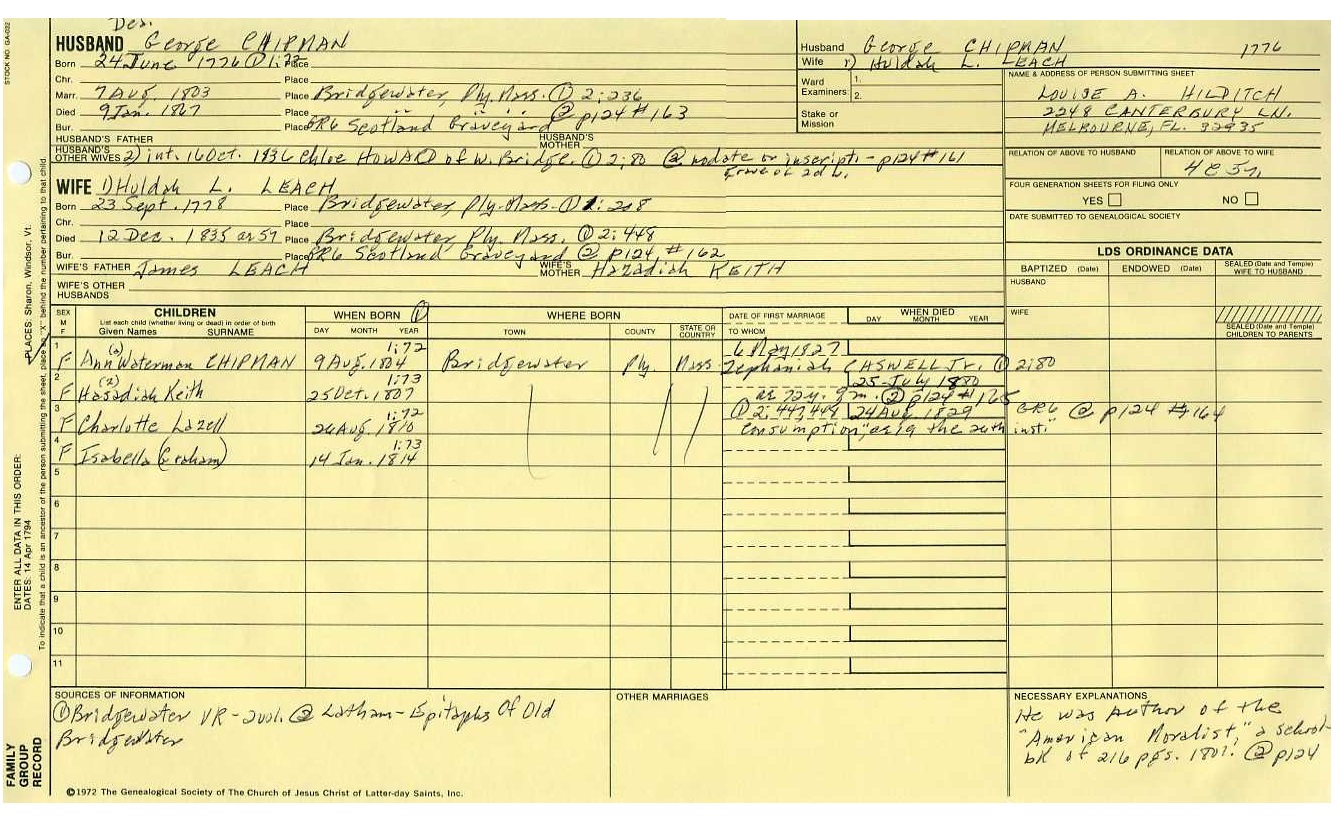 STOCK NO. GA-032
Des.
HUSBAND George CHIPMAN
Born 24 June 1776 ① 1:72 Place
Chr. Place
Marr. 7 Aug. 1803 Place Bridgewater, Ply. Mass. ① 2:236
Died 9 Jan. 1867 Place " "
Bur. Place GR6 Scotland Graveyard ② p124 #163
HUSBAND'S FATHER HUSBAND'S MOTHER
HUSBAND'S OTHER WIVES 2) int. 16 Oct. 1836 Chloe HOWARD of W. Bridge. ① 2:80 ② no date or inscript. - p124 #161
grave of 2d w.
WIFE 1) Huldah L. LEACH
Born 23 Sept. 1778 Place Bridgewater, Ply. Mass. ① 1:218
Chr. Place
Died 12 Dec. 1835 ae 57 Place Bridgewater, Ply. Mass. ① 2:448
Bur. Place GR6 Scotland Graveyard ② p124, #162
WIFE'S FATHER James LEACH WIFE'S MOTHER Hazadiah KEITH
WIFE'S OTHER HUSBANDS
Husband George CHIPMAN 1776
Wife 1) Huldah L. LEACH
Ward Examiners: 1.
2.
Stake or Mission
NAME & ADDRESS OF PERSON SUBMITTING SHEET
LOUISE A. HILDITCH
2248 CANTERBURY LN.
MELBOURNE, FL. 32935
RELATION OF ABOVE TO HUSBAND RELATION OF ABOVE TO WIFE
4C5r.
FOUR GENERATION SHEETS FOR FILING ONLY
YES NO
DATE SUBMITTED TO GENEALOGICAL SOCIETY
LDS ORDINANCE DATA
BAPTIZED (Date) ENDOWED (Date) SEALED (Date and Temple) WIFE TO HUSBAND
HUSBAND
WIFE
SEALED (Date and Temple) CHILDREN TO PARENTS
SEX M F CHILDREN WHEN BORN ① WHERE BORN DATE OF FIRST MARRIAGE WHEN DIED
List each child (whether living or dead) in order of birth
Given Names SURNAME DAY MONTH YEAR TOWN COUNTY STATE OR COUNTRY TO WHOM DAY MONTH YEAR
1 (2) 1:72 6 May 1827
F Ann Waterman CHIPMAN 9 Aug. 1804 Bridgewater Ply. Mass. Zephaniah CASWELL Jr. ① 2:80
2 (2) 1:73 25 July 1880
F Hasadiah Keith 25 Oct. 1807 ae 72y. 9m. ② p124 #165
3 1:72 ① 2:447,448 24 Aug. 1829 GR6 ② p124 #164
F Charlotte Lazell 26 Aug. 1810 "consumption, ae 19 the 26th inst."
4 1:73
F Isabella (Graham) 14 Jan. 1814
5
6
7
8
9
10
11
SOURCES OF INFORMATION
① Bridgewater VR - 2 vol. ② Latham - Epitaphs Of Old
Bridgewater
OTHER MARRIAGES
NECESSARY EXPLANATIONS
He was author of the
"American Moralist," a school-
bk of 216 pgs. 1801. ② p124
©1972 The Genealogical Society of The Church of Jesus Christ of Latter-day Saints, Inc.
FAMILY GROUP RECORD
ENTER ALL DATA IN THIS ORDER:
DATES: 14 Apr 1794
PLACES: Sharon, Windsor, Vt.
To indicate that a child is an ancestor of the person submitting the sheet, place an "X" behind the number pertaining to that child.